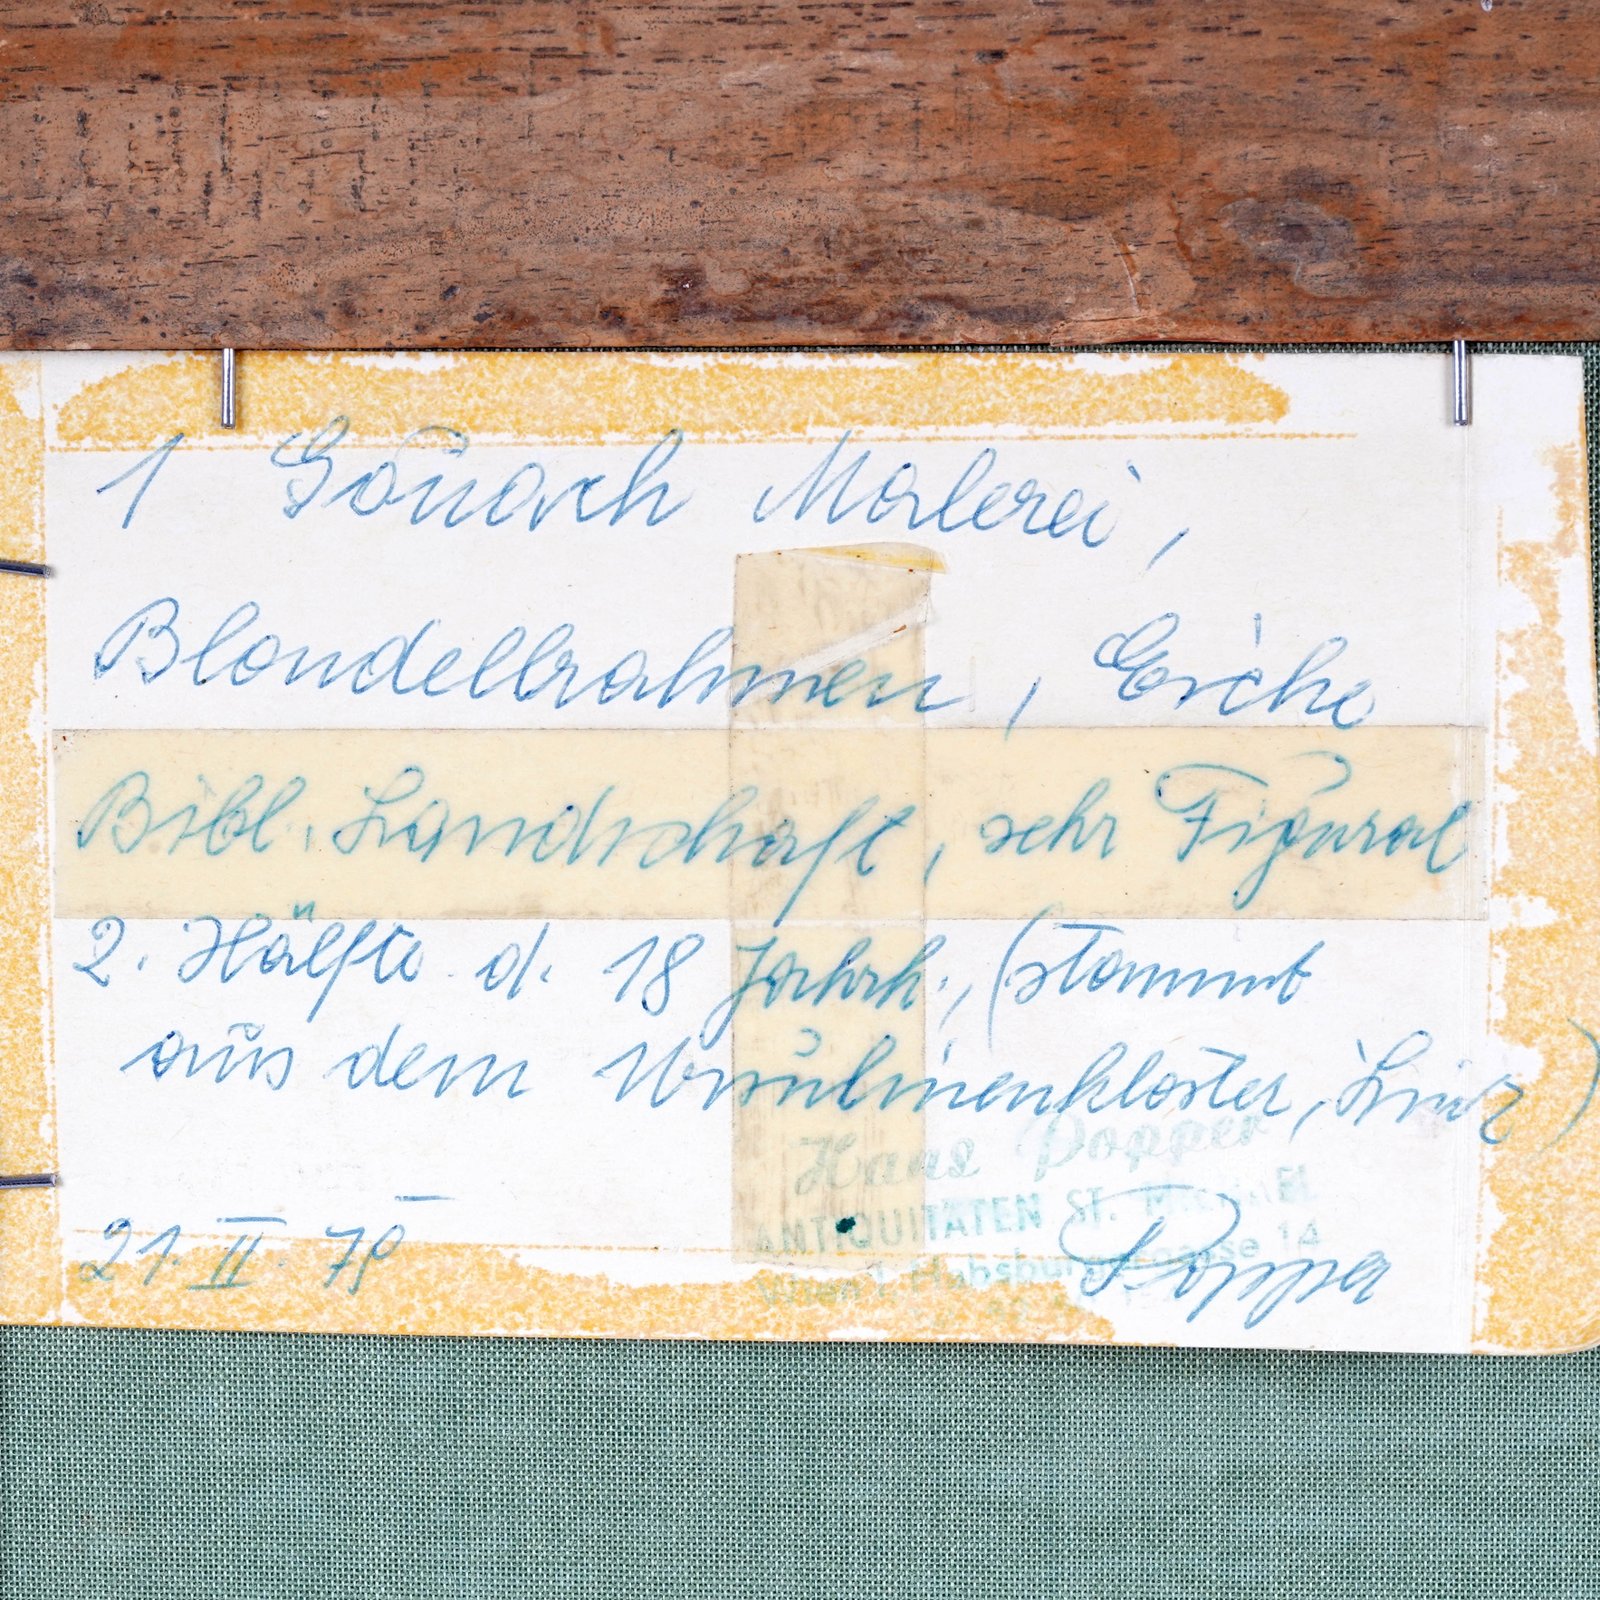 1 Gouach Malerei,
Blondelbrahmen, Eiche
Bibl. Landschaft, sehr Figural
2. Hälfte d. 18 Jahrh., (stammt
aus dem Ursulinenkloster, Linz)
Hans Popper
ANTIQUITÄTEN ST. MICHAEL
Wien 1, Habsburgergasse 14
21. II. 79
Popper